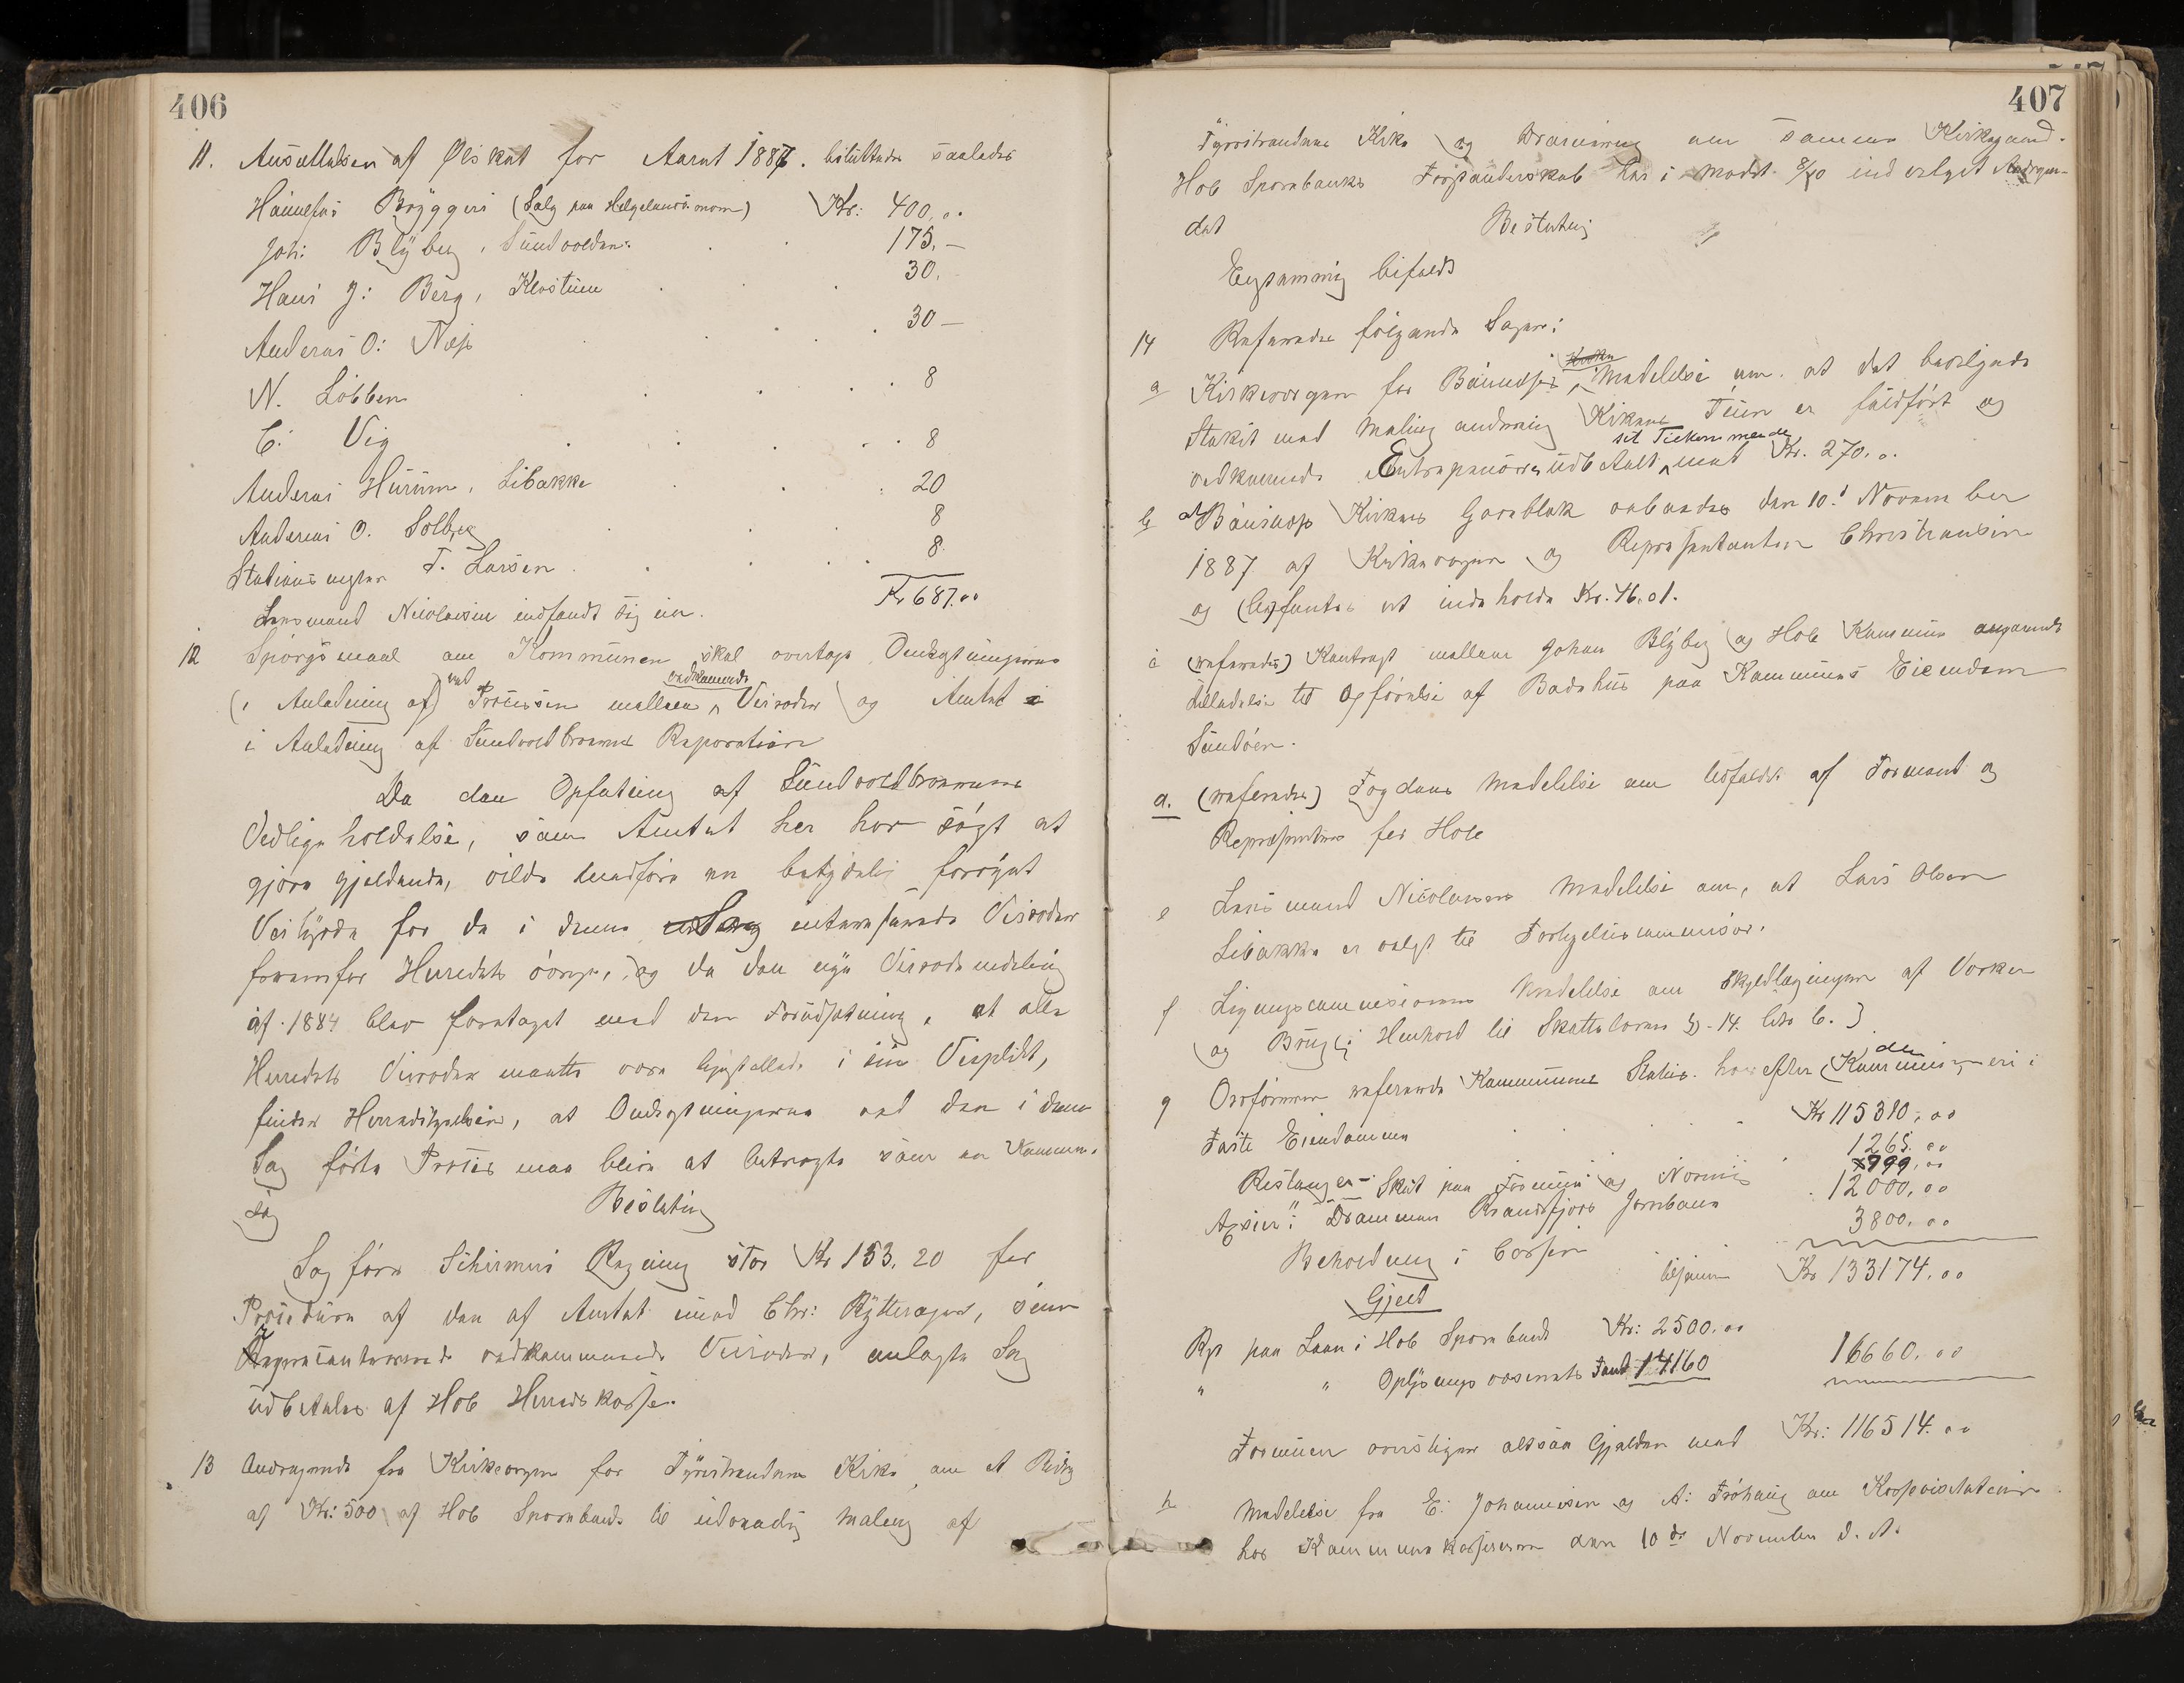 406
11. Ansættelsen af Ølskat for Aaret 1887. besluttedes saaledes
Hønefos Bryggeri (Salg paa Helgelandsmoen) Kr: 400,00
Joh: Blyberg, Sundvolden. 175.—
Hans J: Berg, Klostuen 30.
Anderas O: Næs 30—
N. Løbben 8
C. Vig 8
Anderas Hurum, Libakke 20
Anderas O. Solberg 8
Stationsmester F. Larsen 8.
Kr 687.00
Lensmand Nicolaisen indfandt sig nu.
12 Spørgsmaal om Kommunen skal overtage Omkostningerne
(i Anledning af) ved Processen mellem vedkommende Veiroder og Amtet
i Anledning af Sundvoldbroernes Reparation
Da den Opfatning af Sundvoldbroernes
Vedligeholdelse, som Amtet her har søgt at
gjøre gjeldende, vilde medføre en betydelig forøget
Veibyrde for de i denne Sag interesserede Veiroder
fremfor Herredets øvrige, og da den nye Veirodeindeling
af 1884 blev foretaget med den Forudsætning, at alle
Herredets Veiroder maatte være ligestillede i sin Veipligt,
finder Herredsstyrelsen, at Omkostningerne ved den i denne
Sag førte Proces maa blive at betragte som en Kommune-
sag
Beslutning
Sagfører Schirmers Regning stor Kr 153,20 for
Procedure af den af Amtet imod Chr: Rytterager, som
Repræsenterende vedkommende Veiroder, anlagte Sag
udbetales af Hole Herredskasse.
13 Andragende fra Kirkevergen for Tyristrandens Kirke, om et Bidrag
af Kr: 500 af Hole Sparebank til udvendig Maling af
407
Tyristrandens Kirke og Dræning om samme Kirkegaard.
Hole Sparebanks Forstanderskab har i Møde 8/10 indvilget Andragen-
det
Beslutning
Enstemmig bifaldt
14 Refereredes følgende Sager:
a Kirkevergen for Bønsnes Meddelelse om at det bevilgede
Stakit med Maling omkring Kirkens Tun er fuldført og
vedkommende Entreprenører udbetalt sit Tilkommende med Kr. 270.0.
b Bønsnes Kirkes Gaveblok aabnedes den 10.d November
1887 af Kirkevergen og Repræsentanten Christiansen
og (be)fantes at indeholde Kr. 46.01.
c (refereredes) Kontragt mellem Johan Blyberg og Hole Kommune angaaende
Tilladelse til Opførelse af Badehus paa Kommunens Eiendom
Sundøen.
d. (refereredes) Fogdens Meddelelse om Udfaldet af Formænd og
Repræsentanter for Hole
e Lensmand Nicolaisens Meddelelse om, at Lars Olsen
Libakke er valgt til Forligelsescommissær.
f Ligningscommissionens Meddelelse om Skyldlægningen af Værker
og Brug i Henhold til Skatteloven §-14. litr b.
g Ordføreren refererede Kommunens Status. hvorefter Kommunen eri
Faste Eiendomme Kr 115310,00
1265.00
Restanger— Skat paa Formue og Næring 799.00
Aksier i Drammen Randsfjord Jernbane 12000,00
Beholdning i Cassen 3800.00
tilsammen Kr 133174.00
Gjeld
Rest paa Laan i Hole Sparebank Kr: 2500.00
" " Oplysningsvæsenets Fond 14160 16660.00
Formuen overstiger altsaa Gjælden med Kr: 116514.00
h Meddelelse fra E: Johannesen og A: Frøhaug om Kassevisitation
hos Kommunekassereren den 10de November d. A.